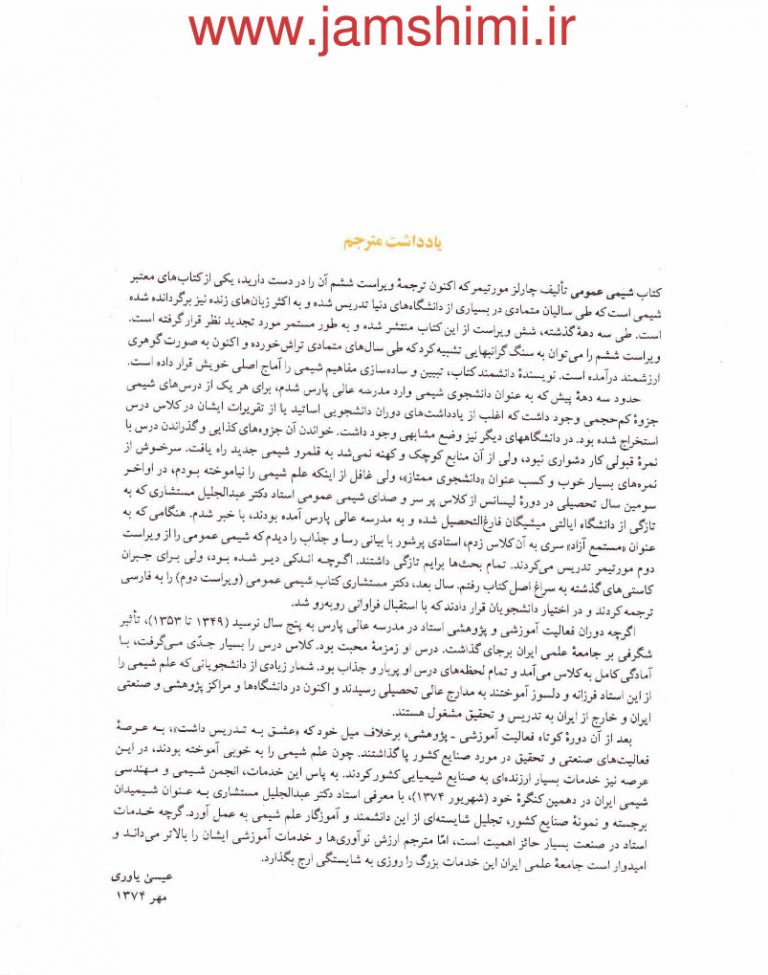 www.jamshimi.ir
یادداشت مترجم
کتاب شیمی عمومی تألیف چارلز مورتیمر که اکنون ترجمهٔ ویراست ششم آن را در دست دارید، یکی از کتاب‌های معتبر
شیمی است که طی سالیان متمادی در بسیاری از دانشگاه‌های دنیا تدریس شده و به اکثر زبان‌های زنده نیز برگردانده شده
است. طی سه دههٔ گذشته، شش ویراست از این کتاب منتشر شده و به طور مستمر مورد تجدید نظر قرار گرفته است.
ویراست ششم را می‌توان به سنگ گرانبهایی تشبیه کرد که طی سال‌های متمادی تراش خورده و اکنون به صورت گوهری
ارزشمند درآمده است. نویسندهٔ دانشمند کتاب، تبیین و ساده‌سازی مفاهیم شیمی را آماج اصلی خویش قرار داده است.
حدود سه دههٔ پیش که به عنوان دانشجوی شیمی وارد مدرسه عالی پارس شدم، برای هر یک از درس‌های شیمی
جزوهٔ کم‌حجمی وجود داشت که اغلب از یادداشت‌های دوران دانشجویی اساتید یا از تقریرات ایشان در کلاس درس
استخراج شده بود. در دانشگاههای دیگر نیز وضع مشابهی وجود داشت. خواندن آن جزوه‌های کذایی و گذراندن درس با
نمرهٔ قبولی کار دشواری نبود، ولی از آن منابع کوچک و کهنه نمی‌شد به قلمرو شیمی جدید راه یافت. سرخوش از
نمره‌های بسیار خوب و کسب عنوان «دانشجوی ممتاز»، ولی غافل از اینکه علم شیمی را نیاموخته بودم، در اواخر
سومین سال تحصیلی در دورهٔ لیسانس از کلاس پر سر و صدای شیمی عمومی استاد دکتر عبدالجلیل مستشاری که به
تازگی از دانشگاه ایالتی میشیگان فارغ‌التحصیل شده و به مدرسه عالی پارس آمده بودند، با خبر شدم. هنگامی که به
عنوان «مستمع آزاد» سری به آن کلاس زدم، استادی پرشور با بیانی رسا و جذاب را دیدم که شیمی عمومی را از ویراست
دوم مورتیمر تدریس می‌کردند. تمام بحث‌ها برایم تازگی داشتند. اگرچه اندکی دیر شده بود، ولی برای جبران
کاستی‌های گذشته به سراغ اصل کتاب رفتم. سال بعد، دکتر مستشاری کتاب شیمی عمومی (ویراست دوم) را به فارسی
ترجمه کردند و در اختیار دانشجویان قرار دادند که با استقبال فراوانی روبه‌رو شد.
اگرچه دوران فعالیت آموزشی و پژوهشی استاد در مدرسه عالی پارس به پنج سال نرسید (۱۳۴۹ تا ۱۳۵۳)، تأثیر
شگرفی بر جامعهٔ علمی ایران برجای گذاشت. درس او زمزمهٔ محبت بود. کلاس درس را بسیار جدّی می‌گرفت، با
آمادگی کامل به کلاس می‌آمد و تمام لحظه‌های درس او پربار و جذاب بود. شمار زیادی از دانشجویانی که علم شیمی را
از این استاد فرزانه و دلسوز آموختند به مدارج عالی تحصیلی رسیدند و اکنون در دانشگاه‌ها و مراکز پژوهشی و صنعتی
ایران و خارج از ایران به تدریس و تحقیق مشغول هستند.
بعد از آن دورهٔ کوتاه فعالیت آموزشی ـ پژوهشی، برخلاف میل خود که «عشق به تدریس داشت»، به عرصهٔ
فعالیت‌های صنعتی و تحقیق در مورد صنایع کشور پا گذاشتند. چون علم شیمی را به خوبی آموخته بودند، در این
عرصه نیز خدمات بسیار ارزنده‌ای به صنایع شیمیایی کشور کردند. به پاس این خدمات، انجمن شیمی و مهندسی
شیمی ایران در دهمین کنگرهٔ خود (شهریور ۱۳۷۴)، با معرفی استاد دکتر عبدالجلیل مستشاری به عنوان شیمیدان
برجسته و نمونهٔ صنایع کشور، تجلیل شایسته‌ای از این دانشمند و آموزگار علم شیمی به عمل آورد. گرچه خدمات
استاد در صنعت بسیار حائز اهمیت است، امّا مترجم ارزش نوآوری‌ها و خدمات آموزشی ایشان را بالاتر می‌داند و
امیدوار است جامعهٔ علمی ایران این خدمات بزرگ را روزی به شایستگی ارج بگذارد.
عیسیٰ یاوری
مهر ۱۳۷۴